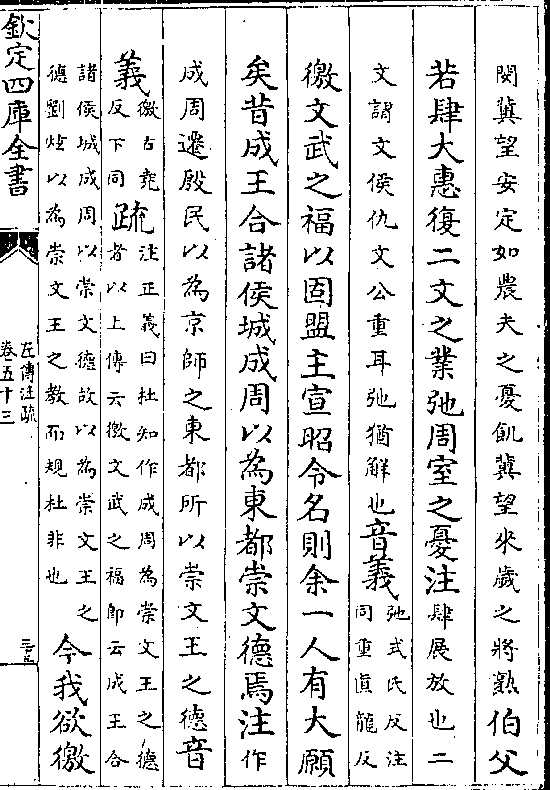 閔冀望安定如農夫之憂飢冀望來歲之將熟伯父
若肆大惠復二文之業弛周室之憂注肆展放也二
文謂文侯仇文公重耳弛猶解也音義弛式氏反注
同重直龍反
徼文武之福以固盟主宣昭令名則余一人有大願
矣昔成王合諸侯城成周以為東都崇文德焉注作
成周遷殷民以為京師之東都所以崇文王之德音
義徼古堯
反下同疏注正義曰杜知作成周為崇文王之德
者以上傳云徼文武之福即云成王合
諸侯城成周以崇文德故以為崇文王之
德劉炫以為崇文王之教而規杜非也今我欲徼
欽定四庫全書
左傳注疏
卷五十三